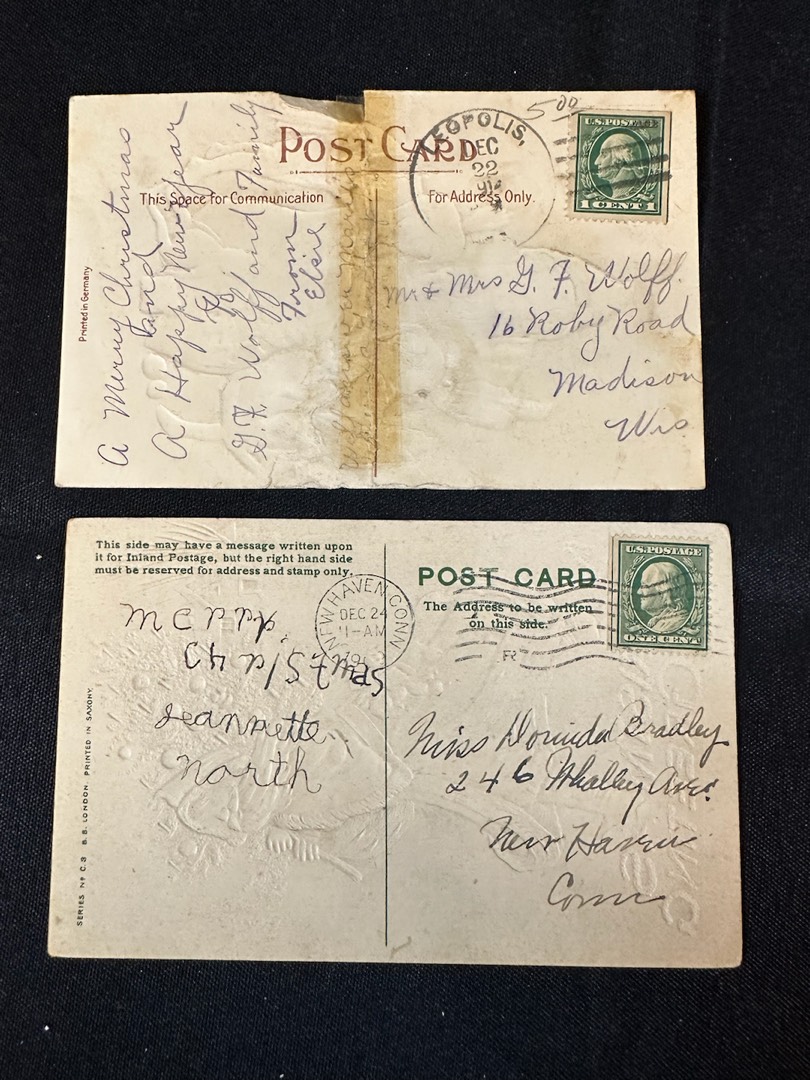 POST CARD
This Space for Communication
For Address Only.
Printed in Germany
A Merry Christmas
and
A Happy New Year
To
G. F. Wolff and Family
From
Elsie
EOPOLIS,
DEC
22
5.00
U.S.POSTAGE
1 CENT 1
Mr & Mrs G. F. Wolff.
16 Roby Road
Madison
Wis
This side may have a message written upon
it for Inland Postage, but the right hand side
must be reserved for address and stamp only.
NEW HAVEN CONN
DEC 24
11-AM
POST CARD
The Address to be written
on this side.
U.S.POSTAGE
ONE CENT
Jeannette
North
SERIES Nº C.3 B.B. LONDON. PRINTED IN SAXONY.
Miss Dorinda Bradley
246 Whalley Ave.
New Haven
Conn